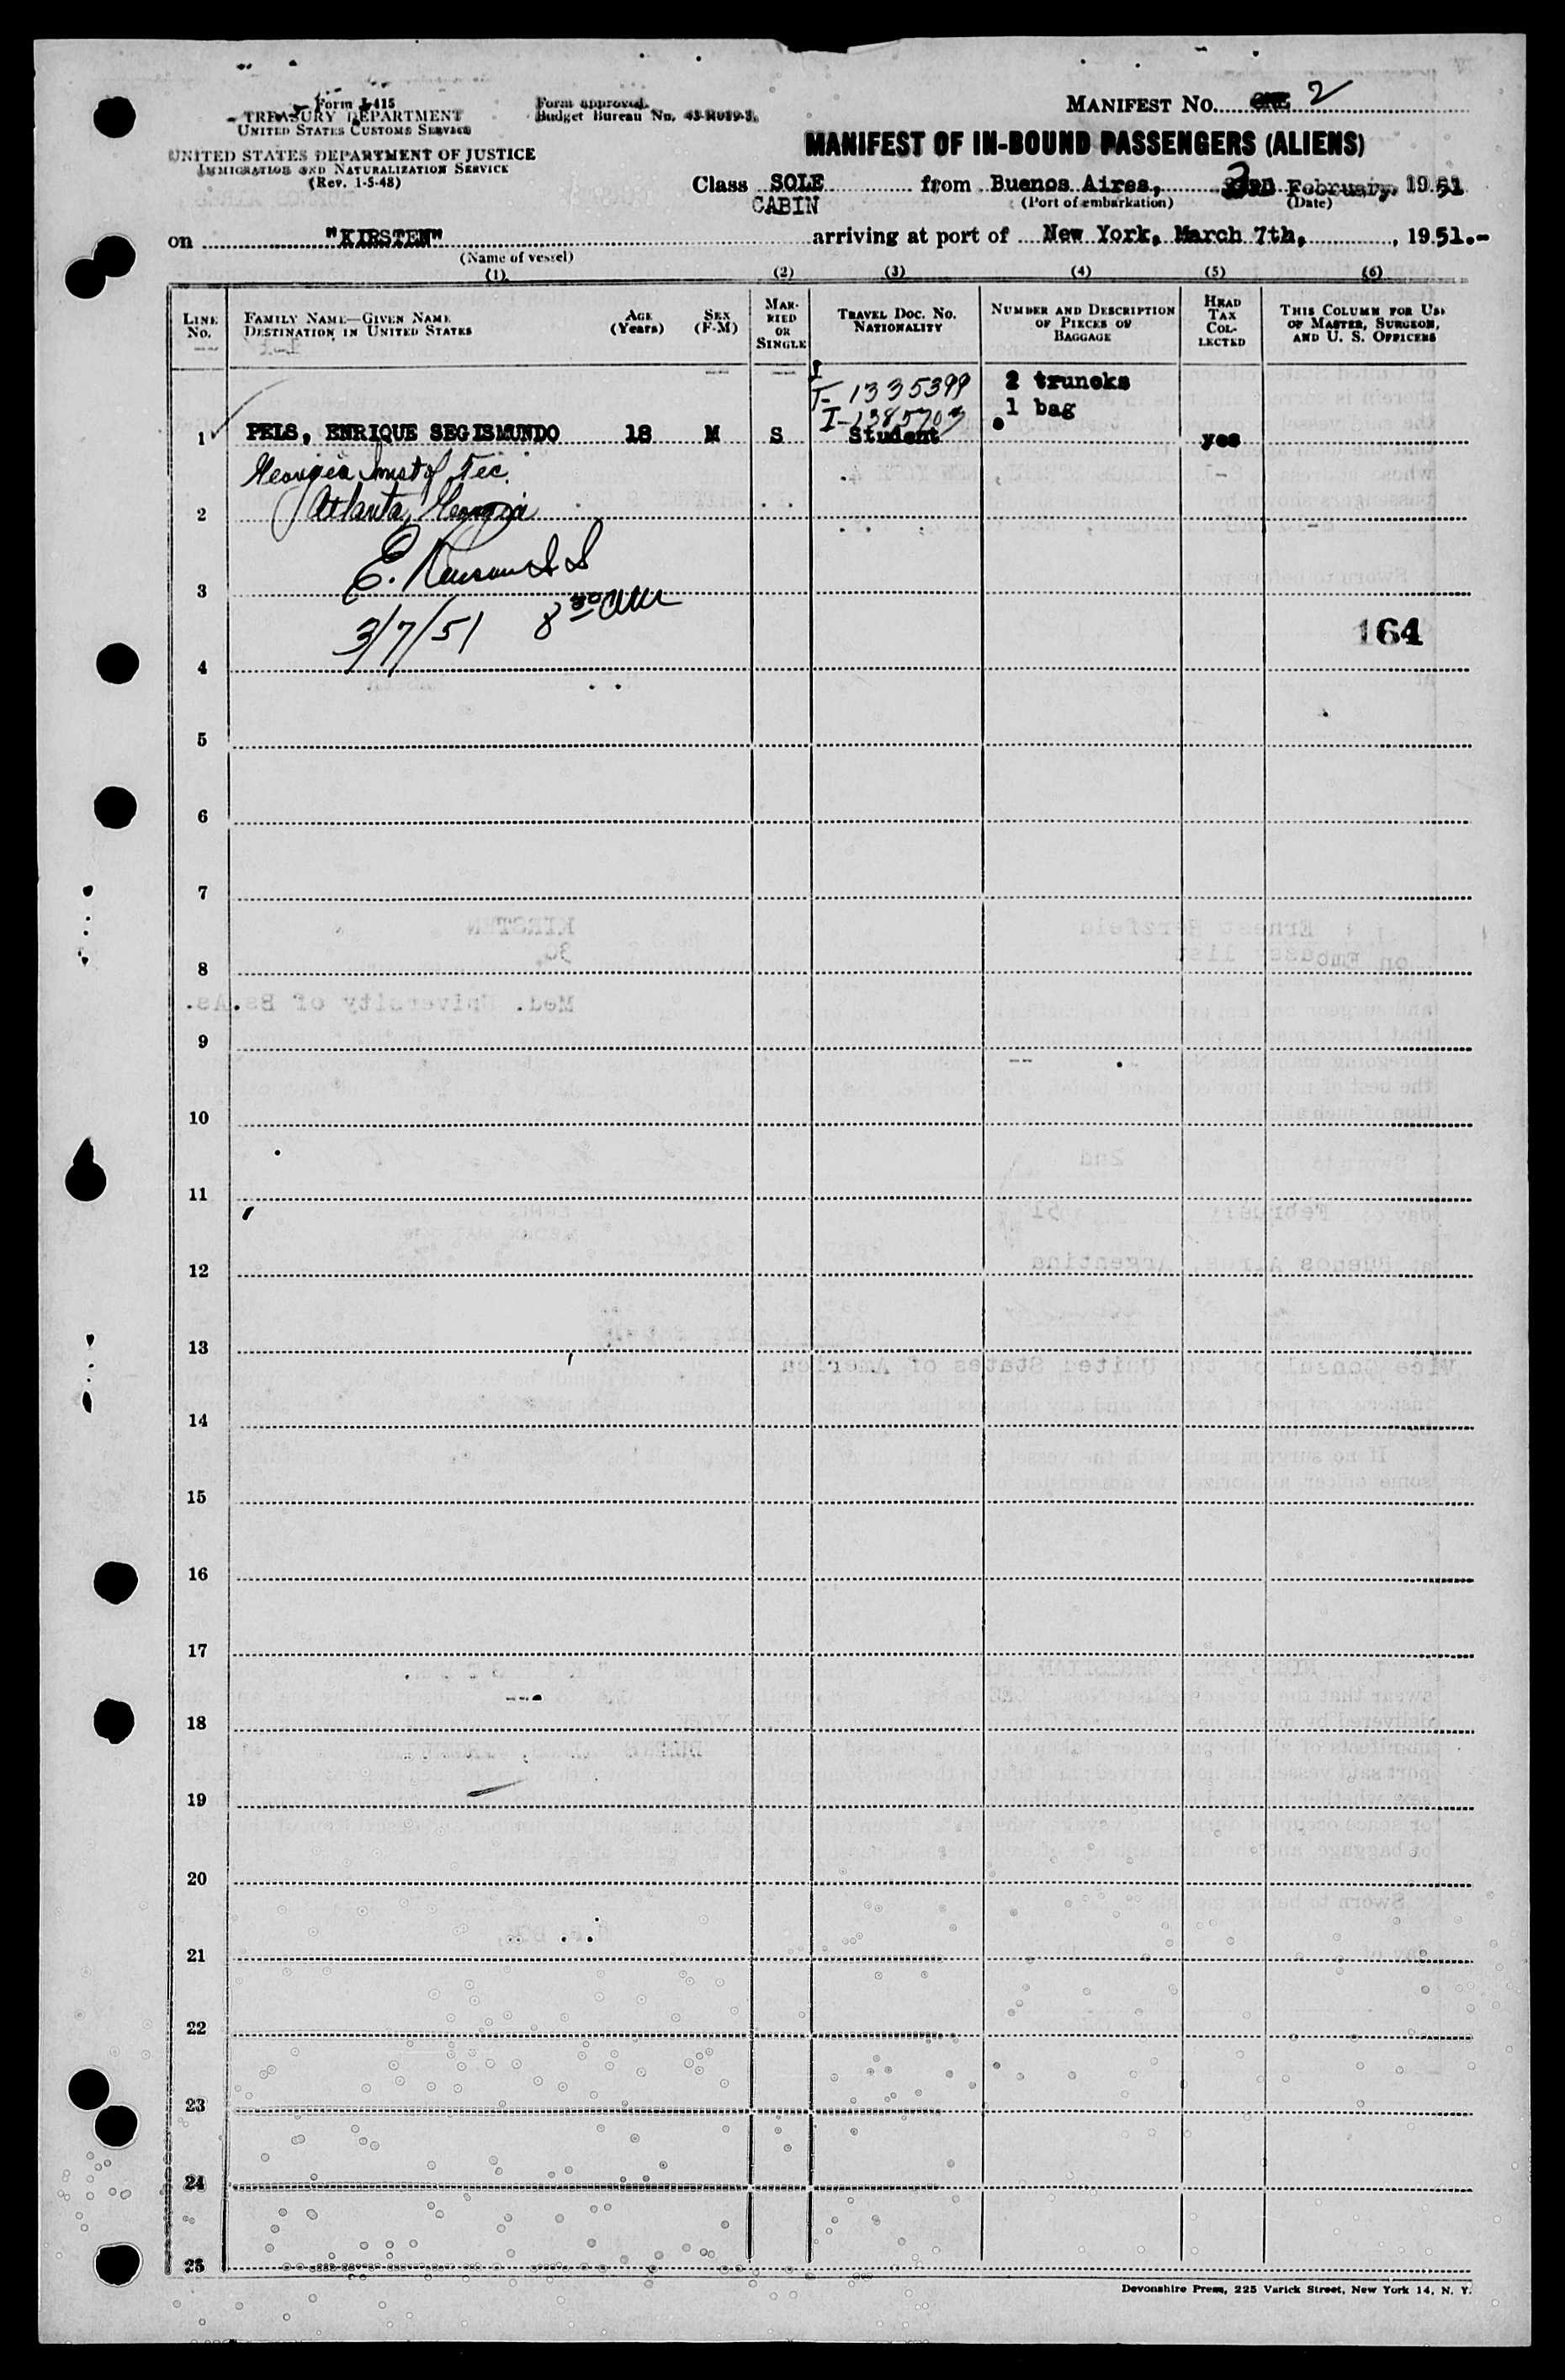 Form I-415
TREASURY DEPARTMENT
UNITED STATES CUSTOMS SERVICE
UNITED STATES DEPARTMENT OF JUSTICE
IMMIGRATION AND NATURALIZATION SERVICE
(Rev. 1-5-48)
Form approved.
Budget Bureau No. 43-R019-3.
MANIFEST NO. 2
MANIFEST OF IN-BOUND PASSENGERS (ALIENS)
Class SOLE CABIN from Buenos Aires, February, 1951
(Port of embarkation) (Date)
on "KIRSTEN" arriving at port of New York, March 7th, 1951.-
(Name of vessel)
(1) (2) (3) (4) (5) (6)
LINE No.
FAMILY NAME—GIVEN NAME
DESTINATION IN UNITED STATES
AGE (Years)
SEX (F-M)
MARRIED OR SINGLE
TRAVEL DOC. NO.
NATIONALITY
NUMBER AND DESCRIPTION OF PIECES OF BAGGAGE
HEAD TAX COLLECTED
THIS COLUMN FOR USE OF MASTER, SURGEON, AND U. S. OFFICERS
I-1335399
I-1385703
2 truncks
1 bag
1 PELS, ENRIQUE SEGISMUNDO 18 M S Student yes
Georgia Inst of Tec.
2 Atlanta, Georgia
E.
3
3/7/51 8 30 AM
164
4
5
6
7
8
9
10
11
12
13
14
15
16
17
18
19
20
21
22
23
24
25
Devonshire Press, 225 Varick Street, New York 14, N. Y.